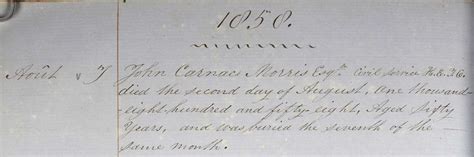 1858.
Août 7 John Carnac Morris Esqre. Civil Service H.E.I.C.
died the second day of August, One thousand
-eight-hundred and fifty-eight, Aged Sixty
Years, and was buried the seventh of the —
same month.